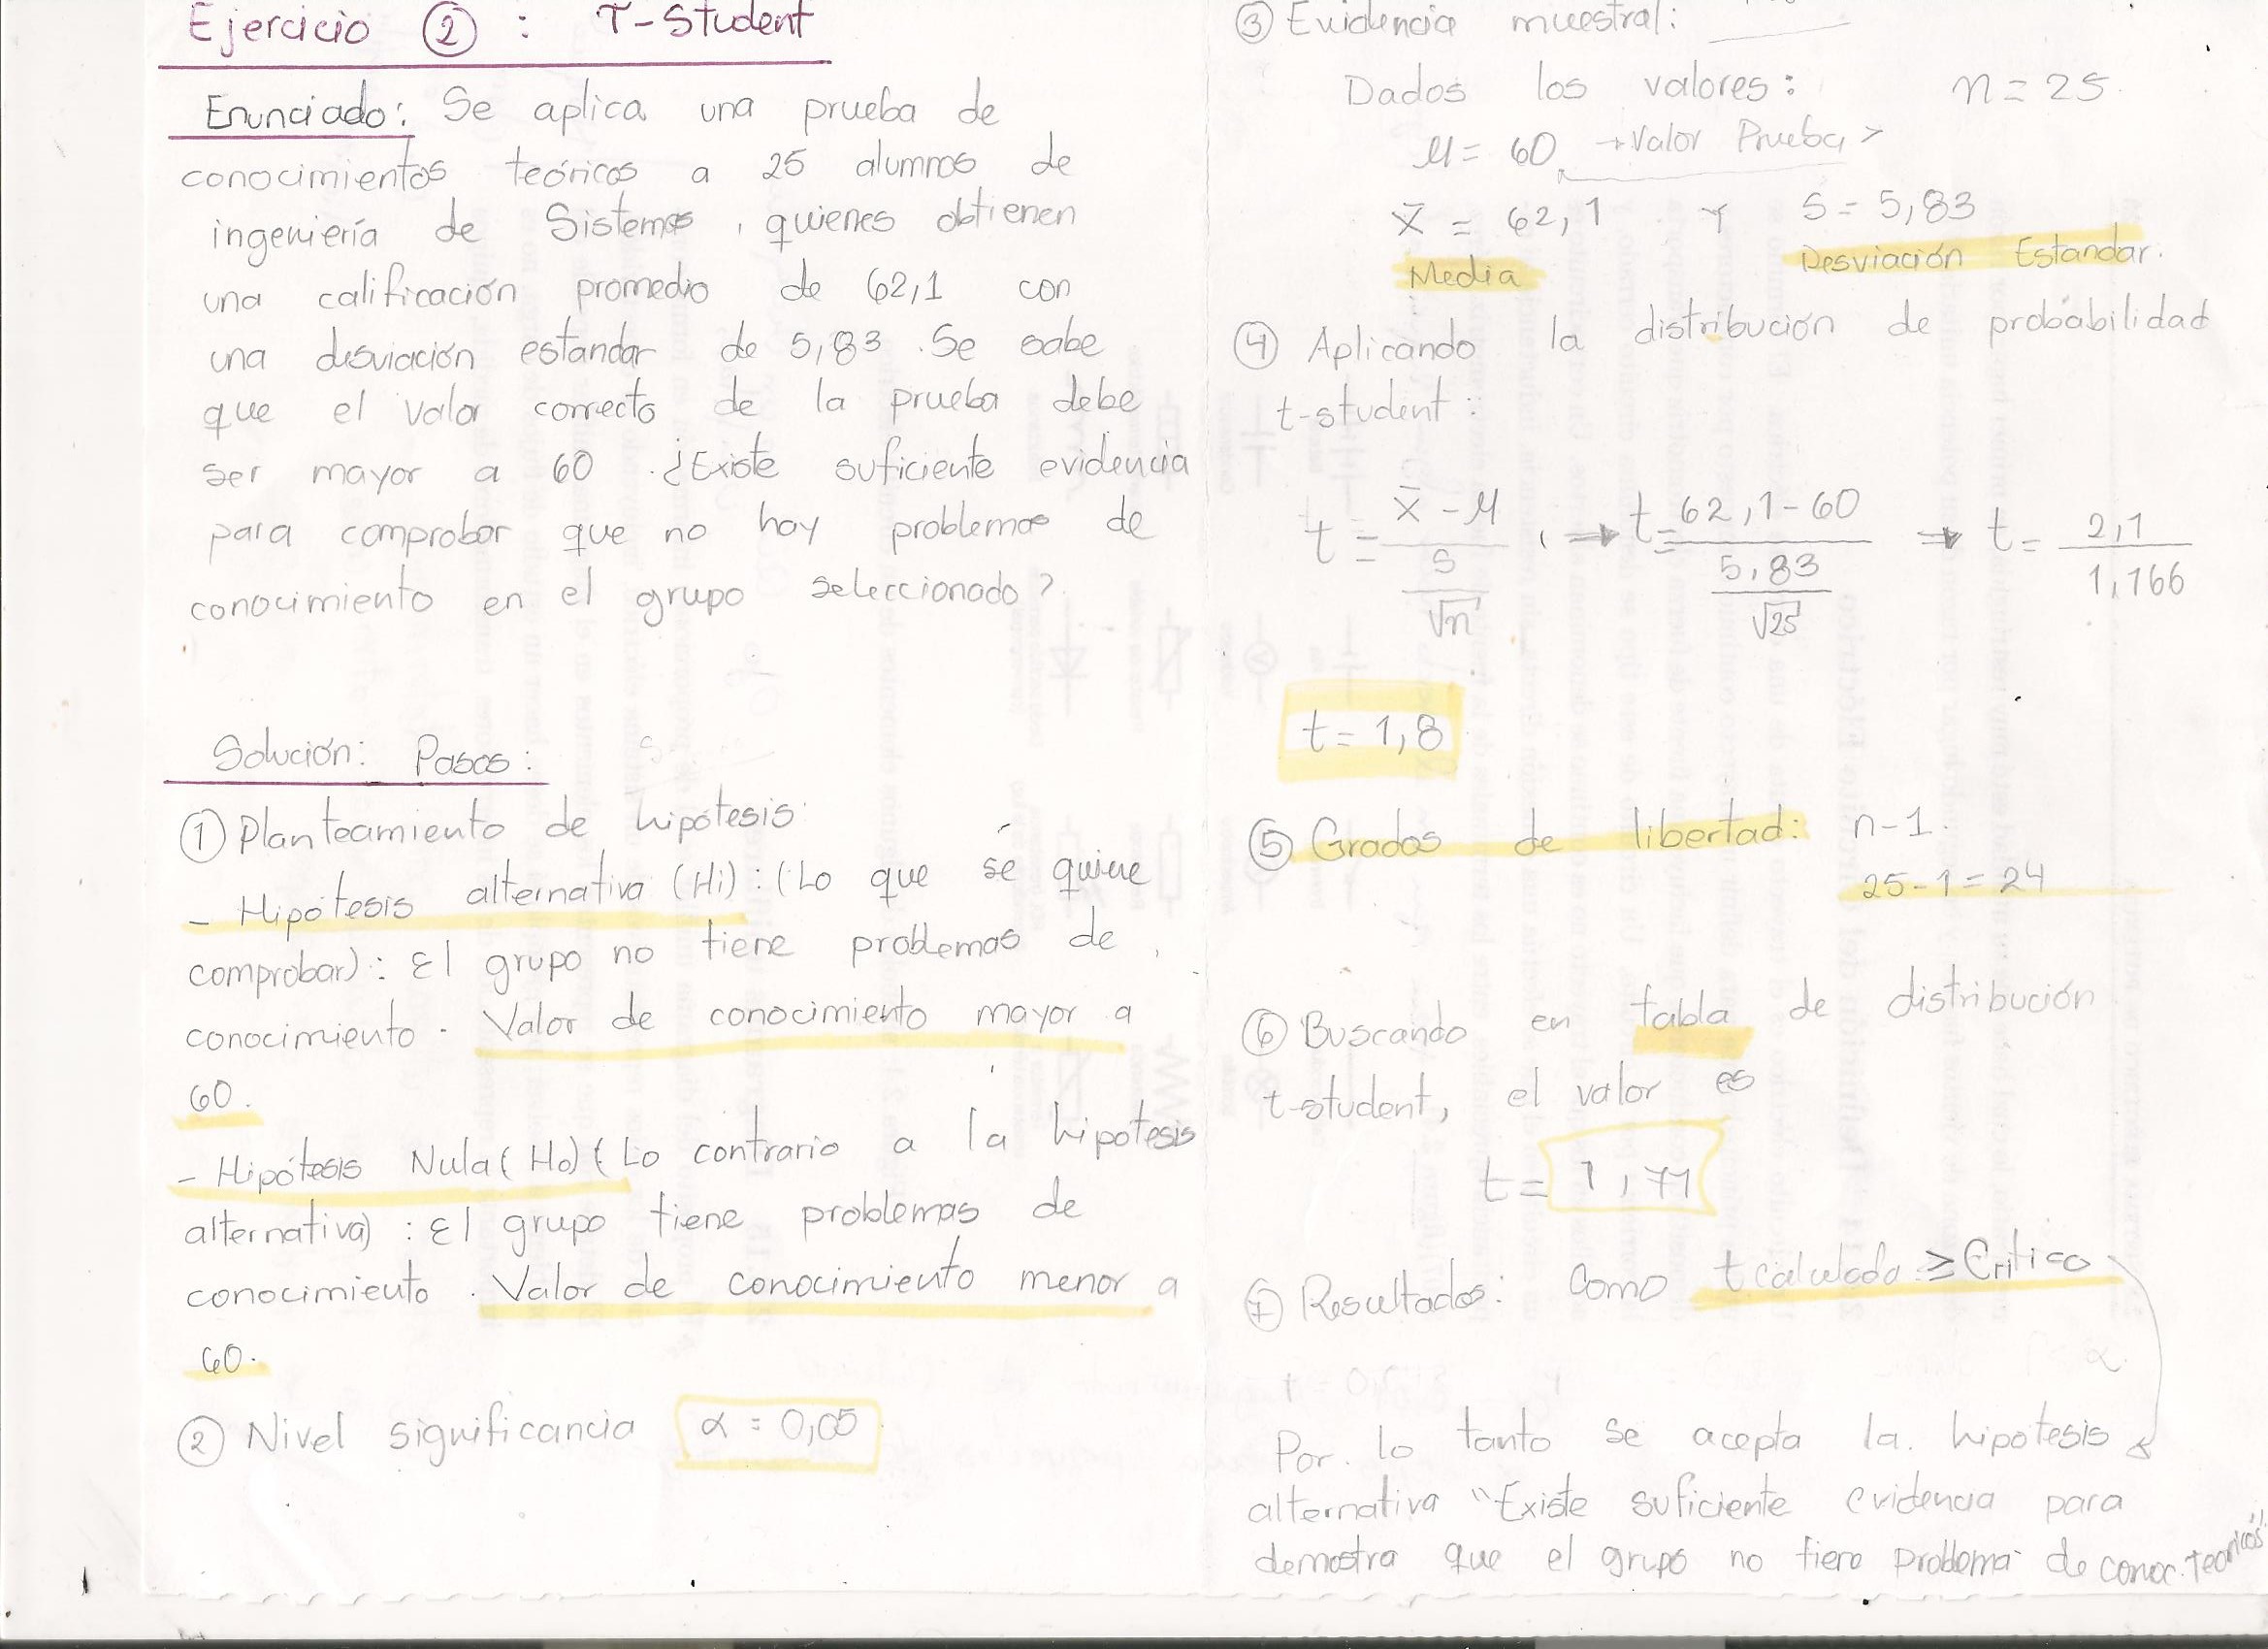 Ejercicio ② : T-Student
Enunciado: Se aplica una prueba de
conocimientos teóricos a 25 alumnos de
ingeniería de Sistemas, quienes obtienen
una calificación promedio de 62,1 con
una desviación estandar de 5,83. Se sabe
que el valor correcto de la prueba debe
ser mayor a 60. ¿Existe suficiente evidencia
para comprobar que no hay problemas de
conocimiento en el grupo seleccionado?
Solución: Pasos:
① Planteamiento de hipótesis
- Hipótesis alternativa (Hi): (Lo que se quiere
comprobar): El grupo no tiene problemas de
conocimiento. Valor de conocimiento mayor a
60.
- Hipótesis Nula (Ho) (Lo contrario a la hipotesis
alternativa) : El grupo tiene problemas de
conocimiento. Valor de conocimiento menor a
60.
② Nivel significancia α = 0,05
③ Evidencia muestral:
Dados los valores: n = 25
μ = 60 → Valor Prueba >
x̄ = 62,1 Y S = 5,83
Media Desviación Estandar.
④ Aplicando la distribución de probabilidad
t-student:
t = (x̄ - μ) / (S / √n) , ⇒ t = (62,1 - 60) / (5,83 / √25) ⇒ t = 2,1 / 1,166
t = 1,8
⑤ Grados de libertad: n-1.
25-1 = 24
⑥ Buscando en tabla de distribución
t-student, el valor es
t = 1,71
⑦ Resultados: Como t calculado ≥ Critico
α
Por lo tanto se acepta la hipotesis
alternativa "Existe suficiente evidencia para
demostra que el grupo no tiene problema de conoc. teoricos"